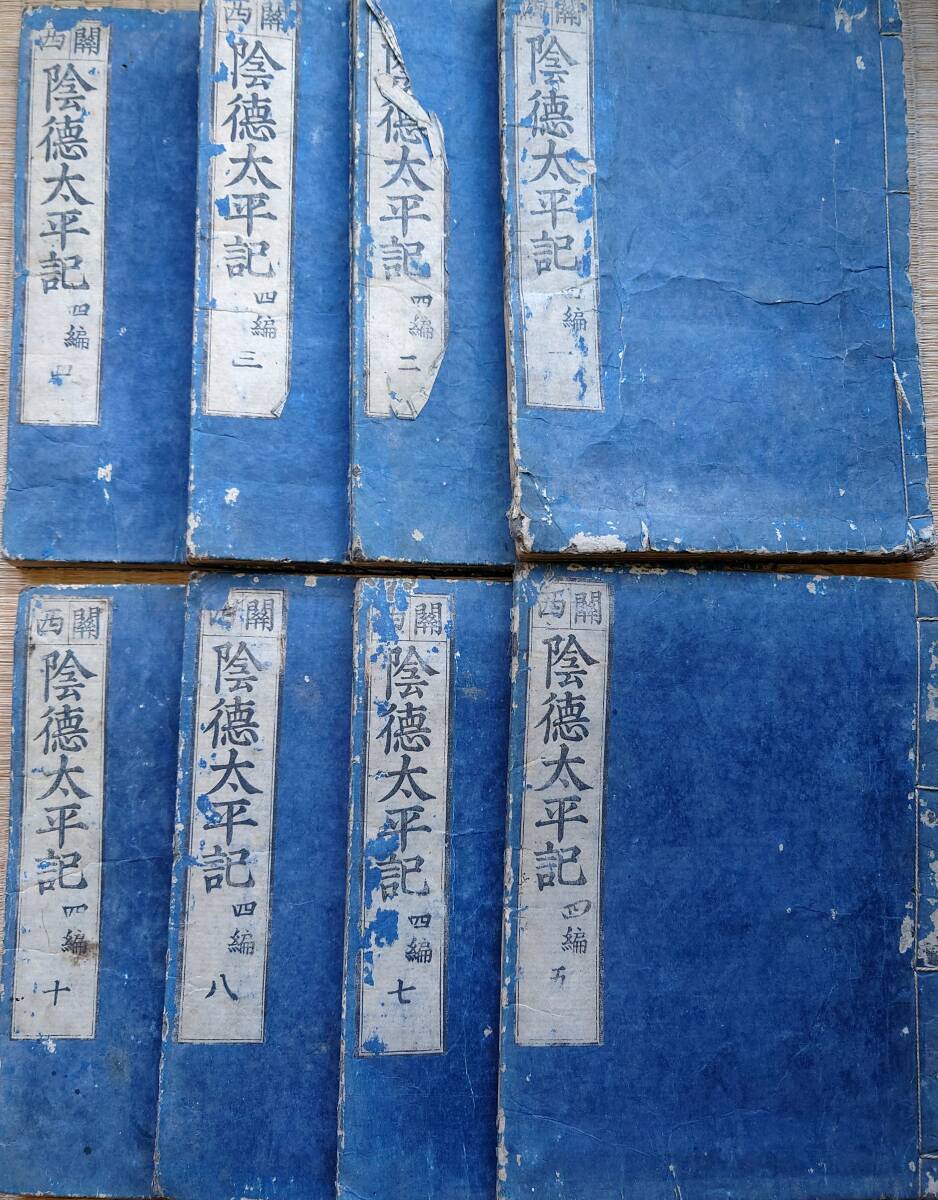 關西
陰徳太平記
四編
一
徳太平記
四編
二
關西
陰徳太平記
四編
三
關西
陰徳太平記
四編
四
關西
陰徳太平記
四編
五
關西
陰徳太平記
四編
七
關西
陰徳太平記
四編
八
關西
陰徳太平記
四編
十